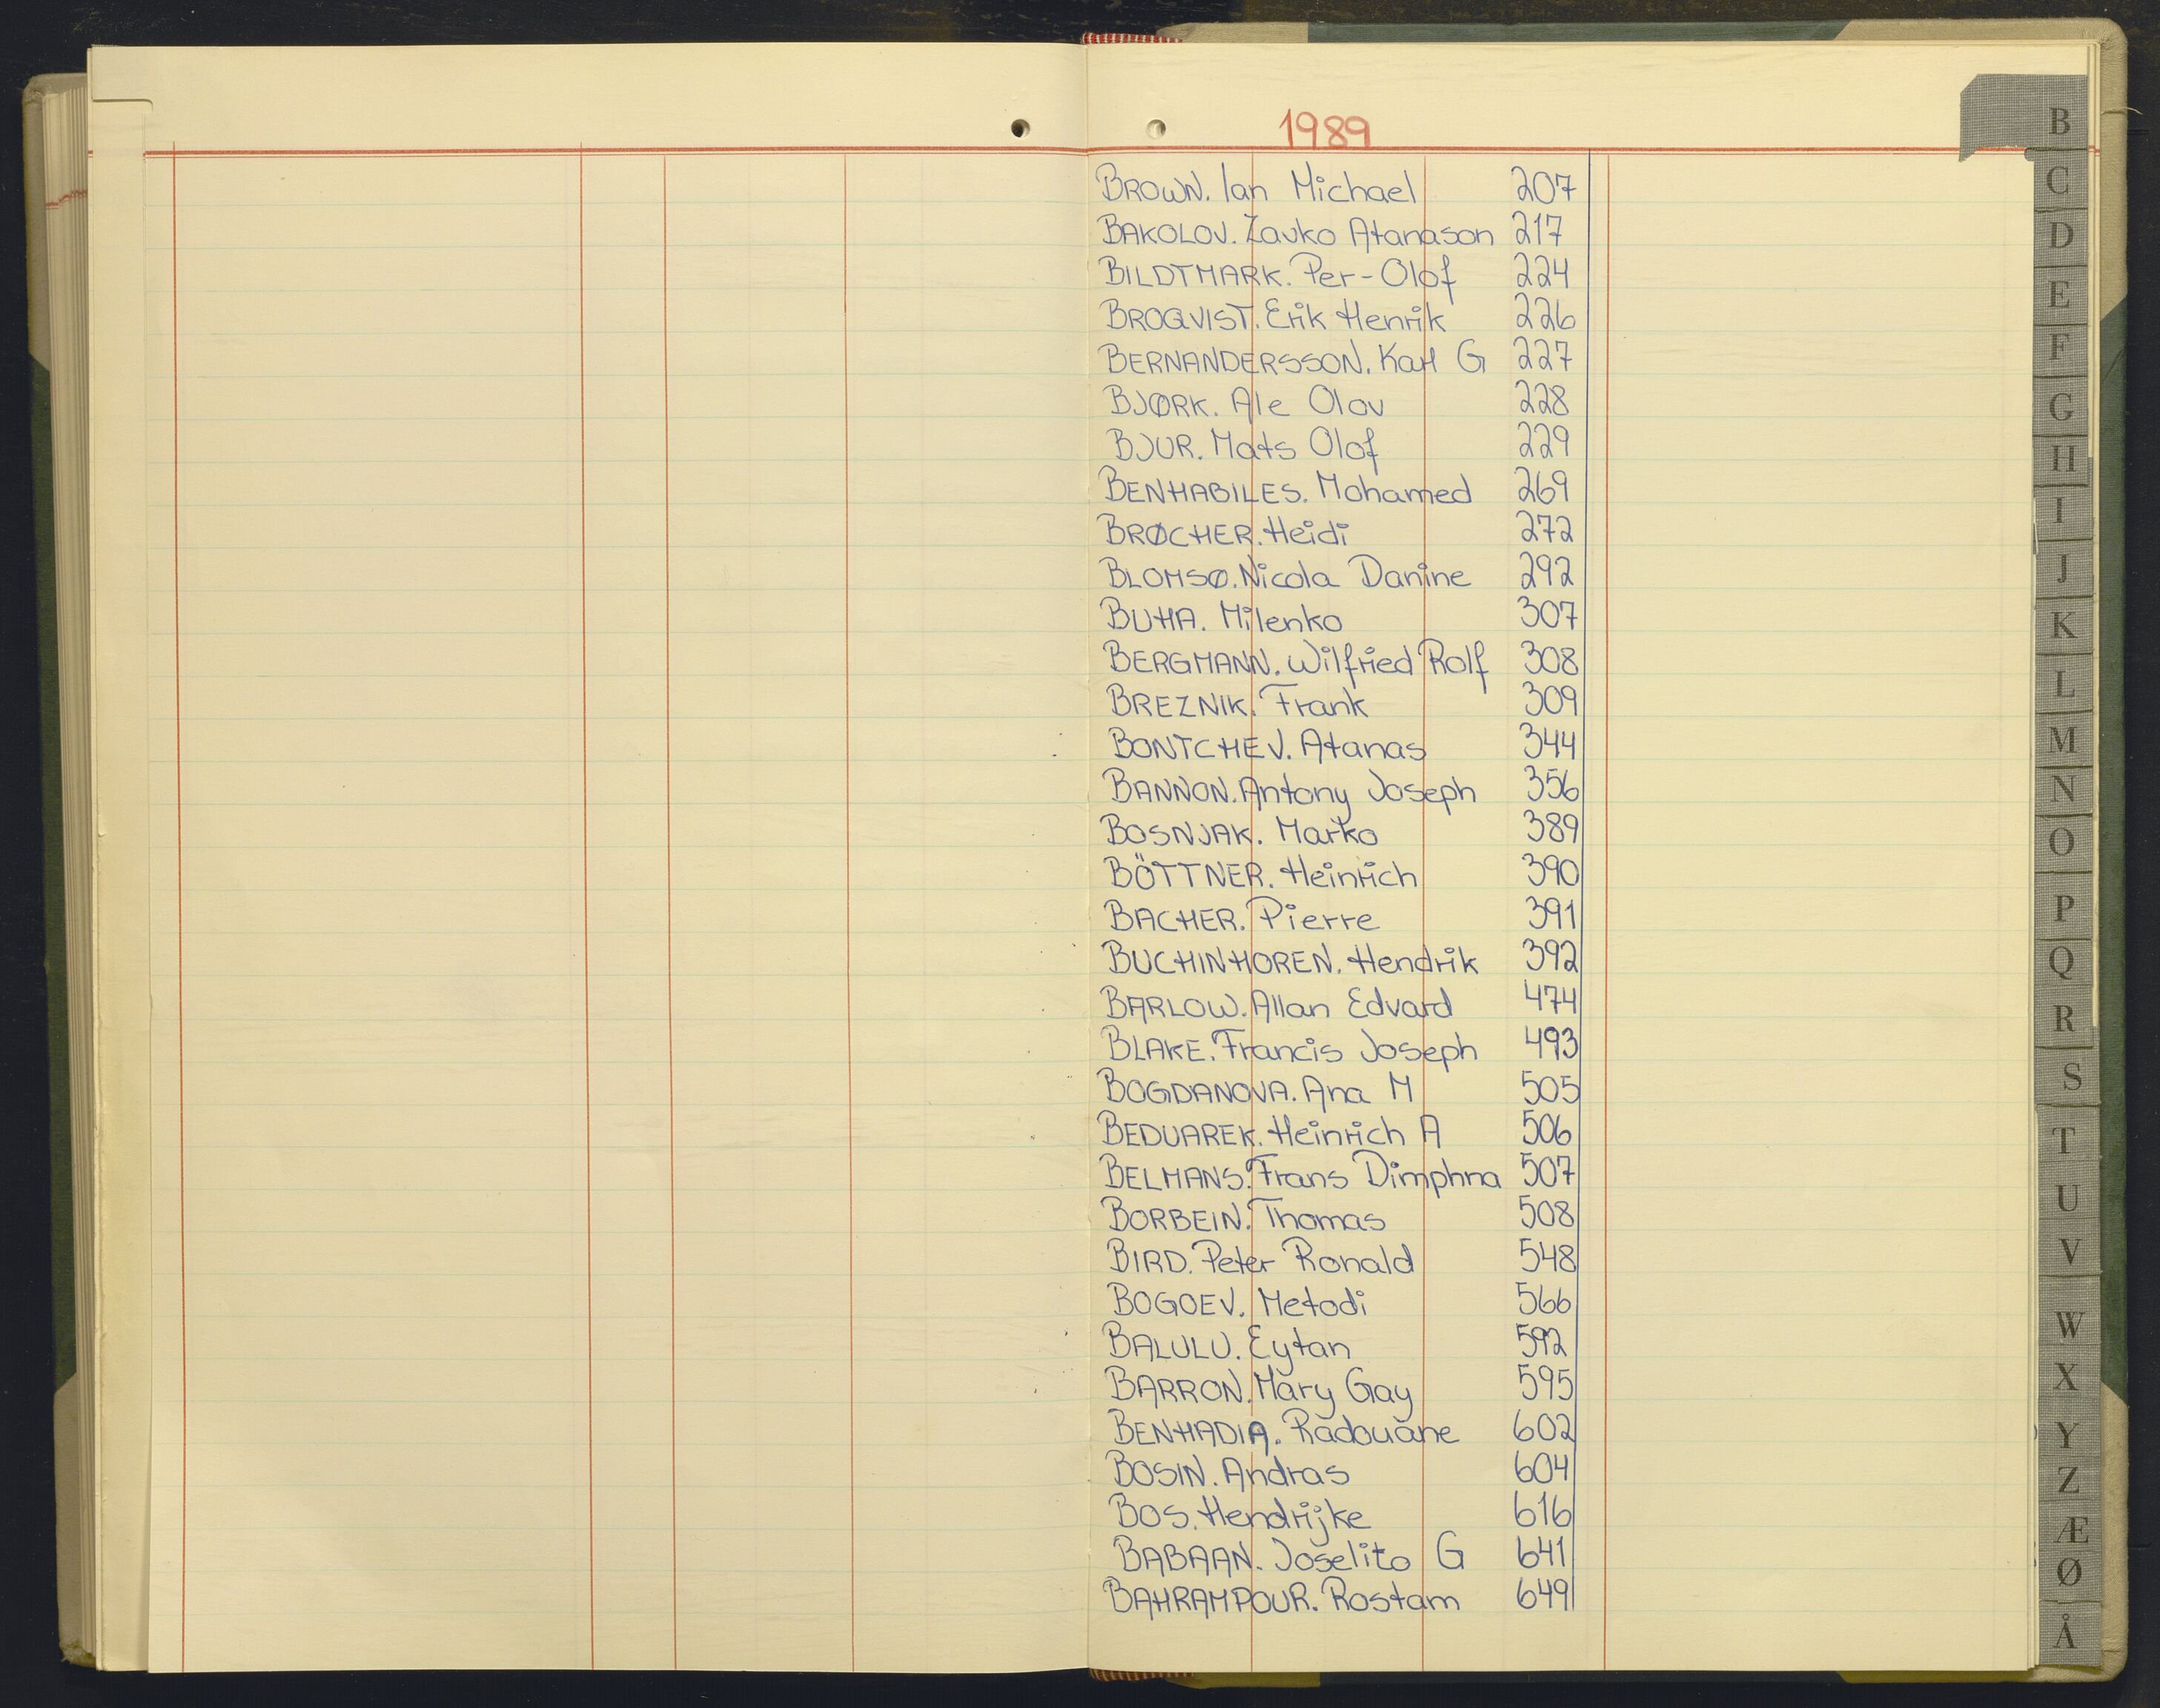 1989
BROWN. Ian Michael 207
BAKOLOV. Zavko Atanason 217
BILDTMARK. Per-Olof 224
BROQVIST. Erik Henrik 226
BERNANDERSSON. Karl G 227
BJØRK. Ale Olov 228
BJUR. Mats Olof 229
BENHABILES. Mohamed 269
BRØCHER. Heidi 272
BLOMSØ. Nicola Danine 292
BUHA. Milenko 307
BERGMANN. Wilfried Rolf 308
BREZNIK. Frank 309
BONTCHEV. Atanas 344
BANNON. Antony Joseph 356
BOSNJAK. Marko 389
BÖTTNER. Heinrich 390
BACHER. Pierre 391
BUCHINHOREN. Hendrik 392
BARLOW. Allan Edvard 474
BLAKE. Francis Joseph 493
BOGDANOVA. Ana M 505
BEDUAREK. Heinrich A 506
BELMANS. Frans Dimphna 507
BORBEIN. Thomas 508
BIRD. Peter Ronald 548
BOGOEV. Metodi 566
BALULU. Eytan 592
BARRON. Mary Gay 595
BENHADIA. Radouane 602
BOSIN. Andras 604
BOS. Hendrijke 616
BABAAN. Joselito G 641
BAHRAMPOUR. Rostam 649
B
C
D
E
F
G
H
I
J
K
L
M
N
O
P
Q
R
S
T
U
V
W
X
Y
Z
Æ
Ø
Å